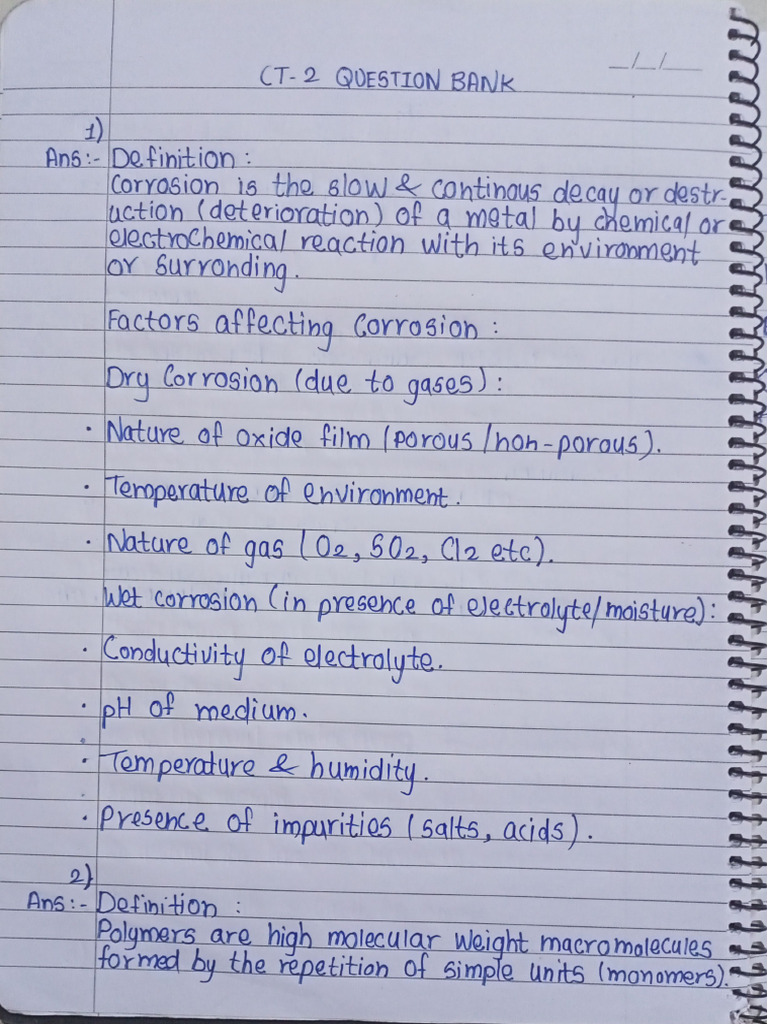 _/_/__
CT-2 QUESTION BANK
1)
Ans:- Definition :
Corrosion is the slow & continous decay or destr-
uction (deterioration) of a metal by chemical or
electrochemical reaction with its environment
or surronding.
Factors affecting Corrosion :
Dry Corrosion (due to gases) :
· Nature of oxide film (porous/non-porous).
· Temperature of environment.
· Nature of gas (O2, SO2, Cl2 etc).
Wet corrosion (in presence of electrolyte/moisture):
· Conductivity of electrolyte.
· pH of medium.
· Temperature & humidity.
· Presence of impurities (salts, acids).
2)
Ans:- Definition :
Polymers are high molecular weight macromolecules
formed by the repetition of simple units (monomers).